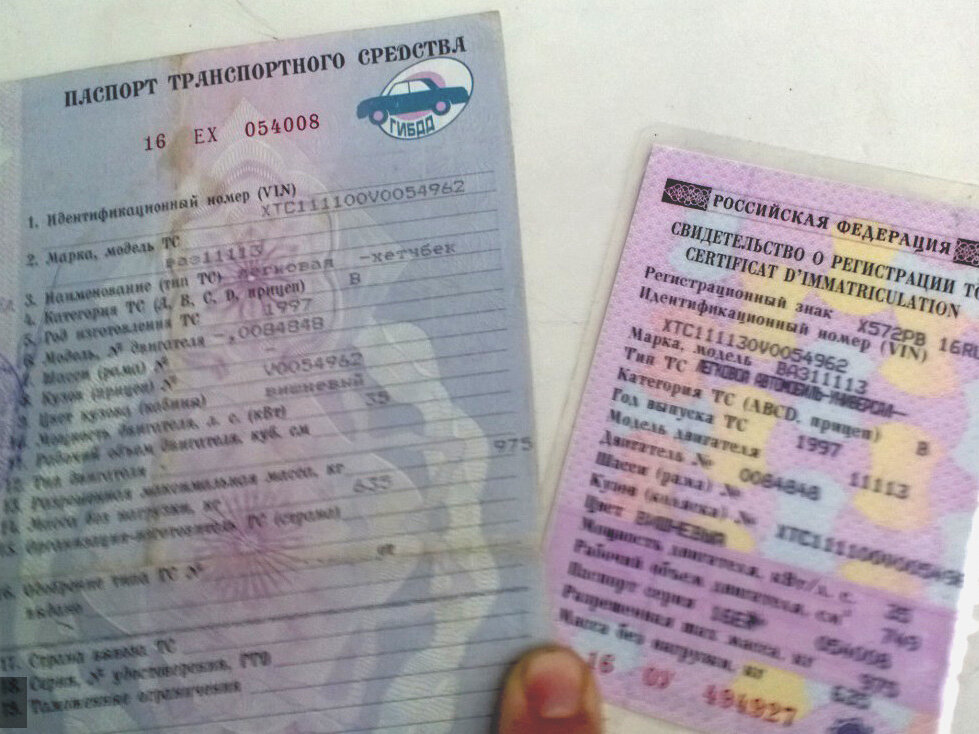 ПАСПОРТ ТРАНСПОРТНОГО СРЕДСТВА
ГИБДД
16 ЕХ 054008
1. Идентификационный номер (VIN)
XTC111100V0054962
2. Марка, модель ТС
ваз11113
3. Наименование (тип ТС) легковая -хетчбек
4. Категория ТС (A, B, C, D, прицеп) В
5. Год изготовления ТС 1997
6. Модель, № двигателя -,0084848
7. Шасси (рама) № -
8. Кузов (прицеп) № V0054962
9. Цвет кузова (кабины) вишневый
10. Мощность двигателя, л. с. (кВт) 35
11. Рабочий объем двигателя, куб. см
12. Тип двигателя
13. Разрешенная максимальная масса, кг 975
14. Масса без нагрузки, кг 635
15. Организация-изготовитель ТС (страна)
16. Одобрение типа ТС № от
выдано
17. Страна вывоза ТС
18. Серия, № удостоверения, ГТД
19. Таможенные ограничения
РОССИЙСКАЯ ФЕДЕРАЦИЯ
СВИДЕТЕЛЬСТВО О РЕГИСТРАЦИИ ТС
CERTIFICAT D'IMMATRICULATION
Регистрационный знак Х572РВ 16RU
Идентификационный номер (VIN)
XTC111130V0054962
Марка, модель ВАЗ11113
Тип ТС ЛЕГКОВОЙ АВТОМОБИЛЬ-УНИВЕРСАЛ-
Категория ТС (ABCD, прицеп) В
Год выпуска ТС 1997
Модель двигателя 11113
Двигатель № 0084848
Шасси (рама) №
Кузов (коляска) № XTC111100V005496
Цвет ВИШНЕВЫЙ
Мощность двигателя, кВт/л. с. 35
Рабочий объем двигателя, см³ 749
Паспорт серия 16ЕХ 054008
Разрешенная max масса, кг 975
Масса без нагрузки, кг 635
16 ОУ 494927